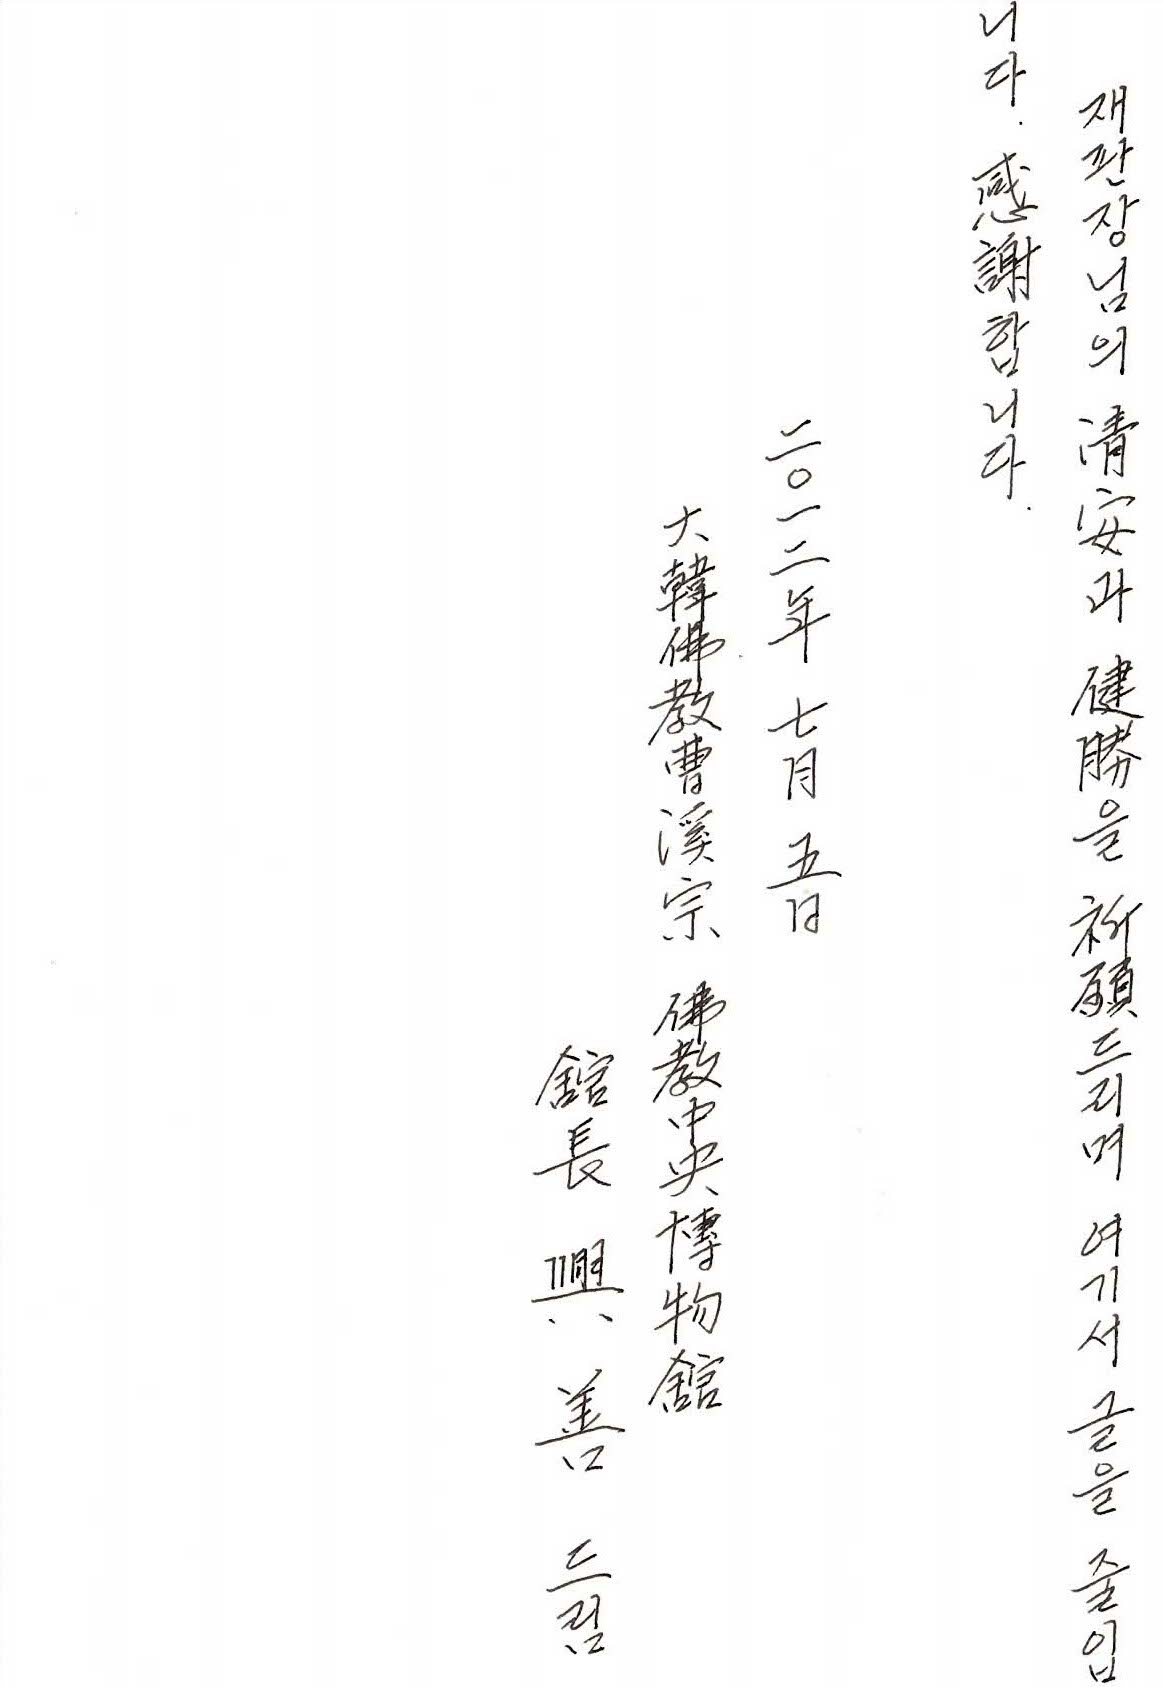 재판장님의 清安과 健勝을 祈願드리며 여기서 글을 줄입
니다. 感謝합니다.
二〇一二年 七月 五日
大韓佛教曹溪宗 佛教中央博物館
舘長 興 善 드림